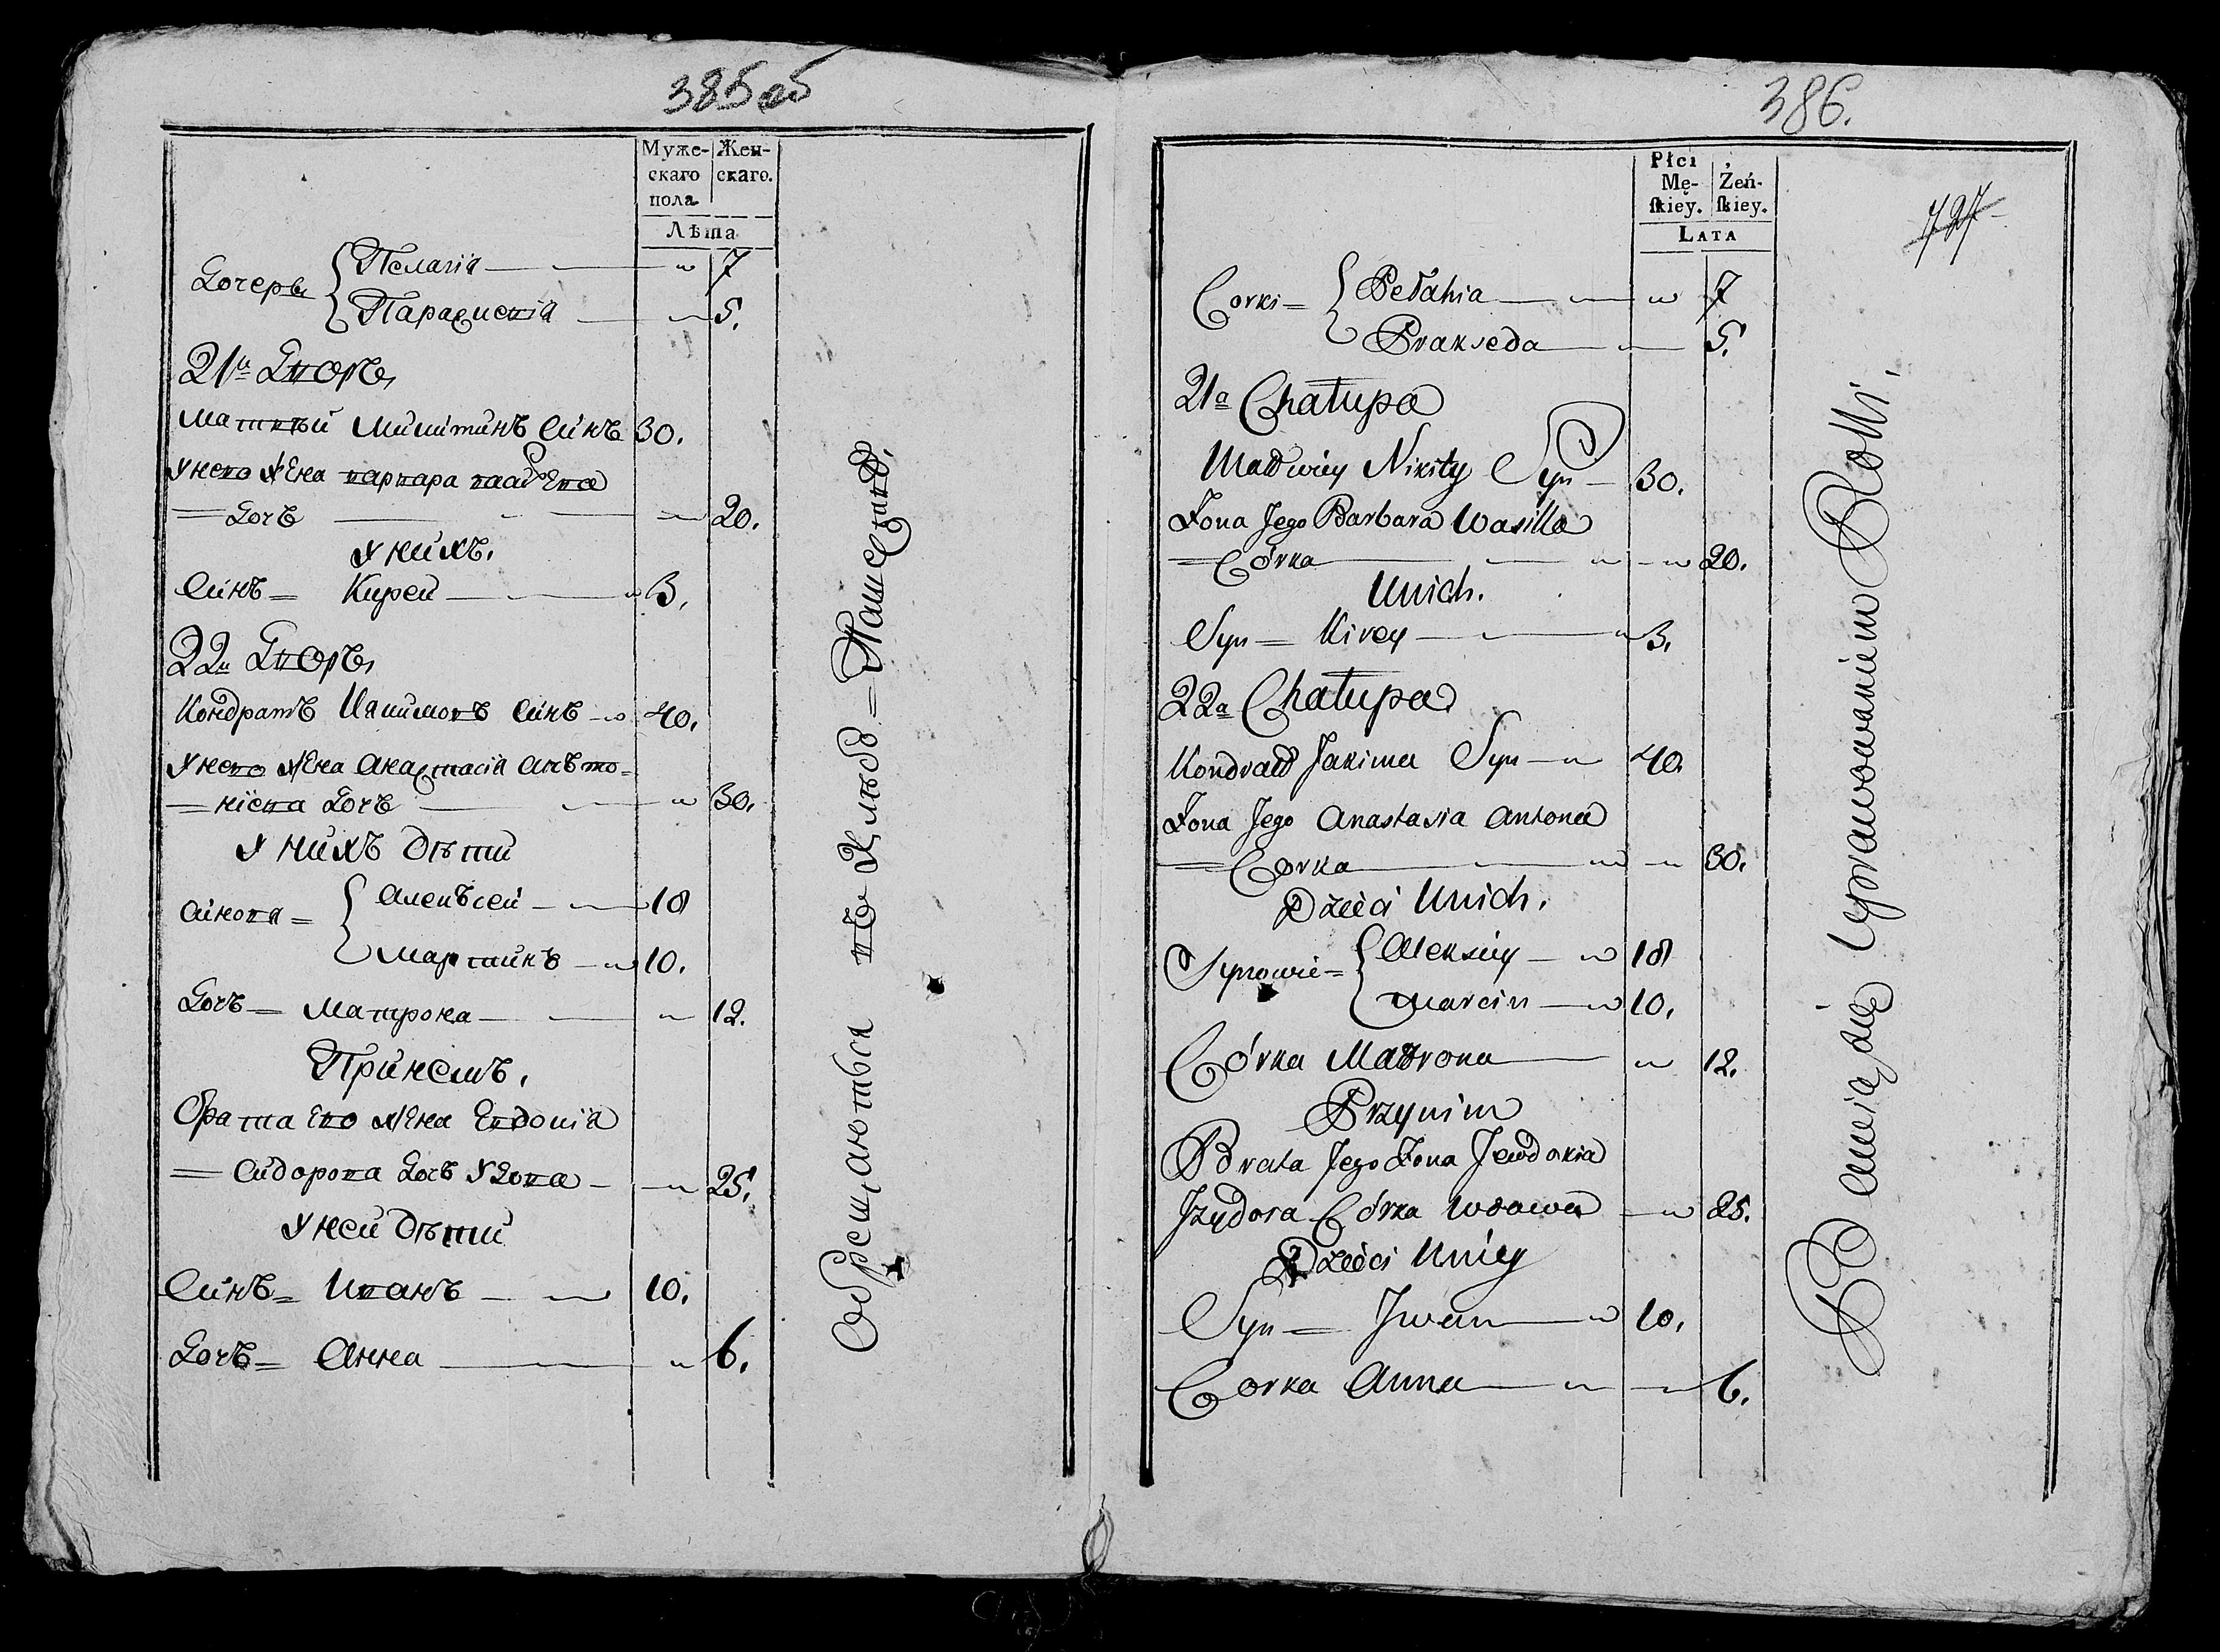 385 об
Муже-
скаго
пола
Жен-
скаго.
Лѣта
Дочеры
Пелагія 7
Параскевія 5.
21й Дворъ,
Матвѣй Микитинъ Синъ 30.
У него Жена Варвара Васильева
= Дочь 20.
У нихъ.
Синъ = Кирей 3.
22й Дворъ,
Кондратъ Иакимовъ Синъ 40.
У него Жена Анастасія Анъто-
= ніева Дочь 30.
У нихъ дѣти
Синова =
Алексъей 18
Мартинъ 10.
Дочь = Матрона 12.
При немъ.
Брата Его Жена Евдокія
= Сидорова Дочь Удова 25.
У ней дѣти
Синъ = Иванъ 10.
Дочь = Анна 6.
Обрещаються въ Хлѣбо = Пашествѣ.
386.
727
Płci
Mę-
ſkiey.
Żeń-
ſkiey.
LATA
Corki =
Pełahia 7
Prakseda 5.
21a Chałupa
Matwiey Nikity Syn 30.
Żona Jego Barbara Wasilla
= Córka 20.
Unich.
Syn = Kirey 3.
22a Chałupa
Kondratt Jakima Syn 40.
Żona Jego Anastasia Antona
= Corka 30.
Dzieci Unich.
Synowie =
Alexiey 18
Marcin 10.
Córka Matrona 12.
Przynim
Brata Jego Żona Jewdokia
Izydora Córka Wdowa 25.
Dzieci Uniey
Syn = Iwan 10.
Corka Anna 6.
Bawią się Uprawowaniem Rolli.